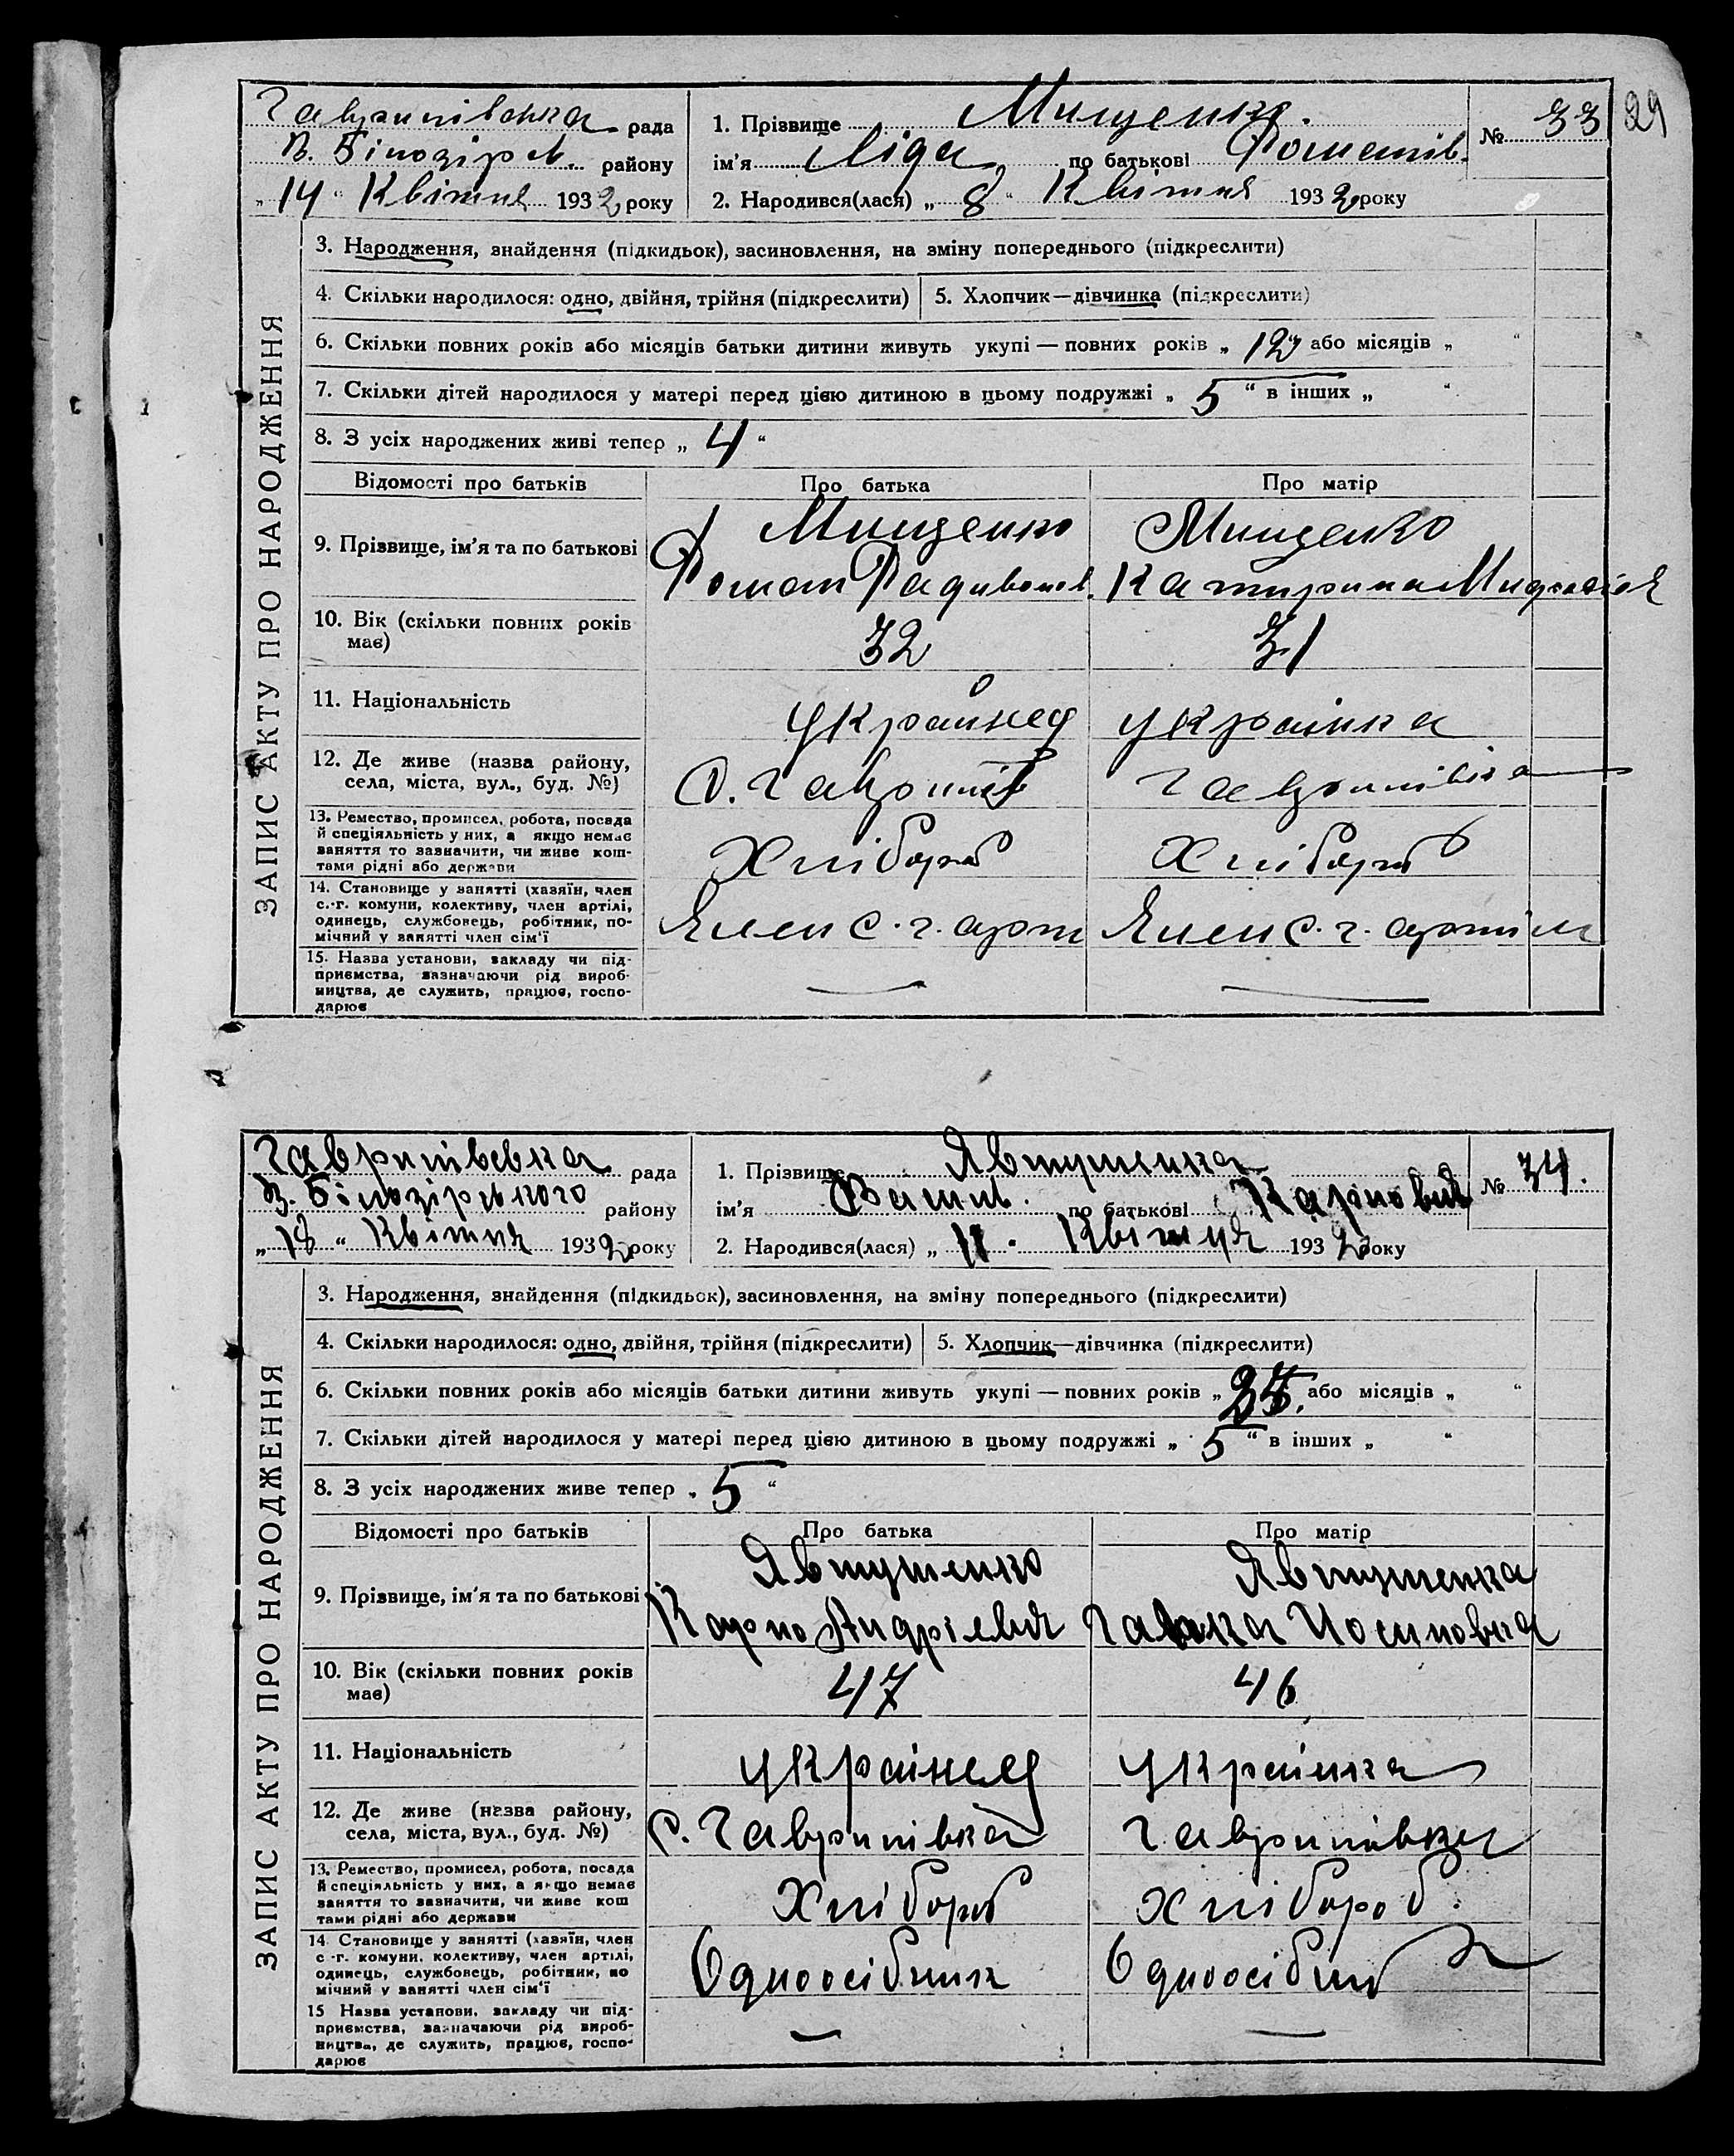 29
Гаврилівська рада
В. Білозірськ. району
„14“ Квітня 1932 року
1. Прізвище Мищенко.
ім'я Ліда по батькові Романів.
2. Народився(лася) „8“ Квітня 1932 року
№ 33
ЗАПИС АКТУ ПРО НАРОДЖЕННЯ
3. Народження, знайдення (підкидьок), засиновлення, на зміну попереднього (підкреслити)
4. Скільки народилося: одно, двійня, трійня (підкреслити)
5. Хлопчик—дівчинка (підкреслити)
6. Скільки повних років або місяців батьки дитини живуть укупі — повних років „12“ або місяців „ “
7. Скільки дітей народилося у матері перед цією дитиною в цьому подружжі „5“ в інших „ “
8. З усіх народжених живі тепер „4“
Відомості про батьків Про батька Про матір
9. Прізвище, ім'я та по батькові
Мищенко
Роман Радивонов.
Мищенко
Катирина
10. Вік (скільки повних років має)
32 31
11. Національність
українец українка
12. Де живе (назва району,
села, міста, вул., буд. №)
с. Гаврилів Гаврилівка
13. Ремество, промисел, робота, посада
й спеціяльність у них, а якщо немає
заняття то зазначити, чи живе кош-
тами рідні або держави
Хлібороб Хлібороб
14. Становище у занятті (хазяїн, член
с.-г. комуни, колективу, член артілі,
одинець, службовець, робітник, по-
мічний у занятті член сім'ї
Член с. г. арт Член с. г. артіли
15. Назва установи, закладу чи під-
приємства, зазначаючи рід вироб-
ництва, де служить, працює, госпо-
дарює
Гаврилівська рада
В. Білозірського району
„18“ Квітня 1932 року
1. Прізвище Явтушенка
ім'я Василь. по батькові Карпович
2. Народився(лася) „11“ Квітня 1932 року
№ 34.
ЗАПИС АКТУ ПРО НАРОДЖЕННЯ
3. Народження, знайдення (підкидьок), засиновлення, на зміну попереднього (підкреслити)
4. Скільки народилося: одно, двійня, трійня (підкреслити)
5. Хлопчик—дівчинка (підкреслити)
6. Скільки повних років або місяців батьки дитини живуть укупі — повних років або місяців „ “
7. Скільки дітей народилося у матері перед цією дитиною в цьому подружжі „5“ в інших „ “
8. З усіх народжених живе тепер „5“
Відомості про батьків Про батька Про матір
9. Прізвище, ім'я та по батькові
Явтушенко
Карпо Андрієвич
Явтушенка
Йосиповна
10. Вік (скільки повних років має)
47 46
11. Національність
українец українка
12. Де живе (назва району,
села, міста, вул., буд. №)
с. Гаврилівка Гаврилівка
13. Ремество, промисел, робота, посада
й спеціяльність у них, а якщо немає
заняття то зазначити, чи живе кош
тами рідні або держави
Хлібороб Хлібороб.
14. Становище у занятті (хазяїн, член
с -г. комуни, колективу, член артілі,
одинець, службовець, робітник, по
мічний у занятті член сім'ї
Одноосібник Одноосібник
15 Назва установи, закладу чи під-
приємства, зазначаючи рід вироб-
ництва, де служить, працює, госпо-
дарює